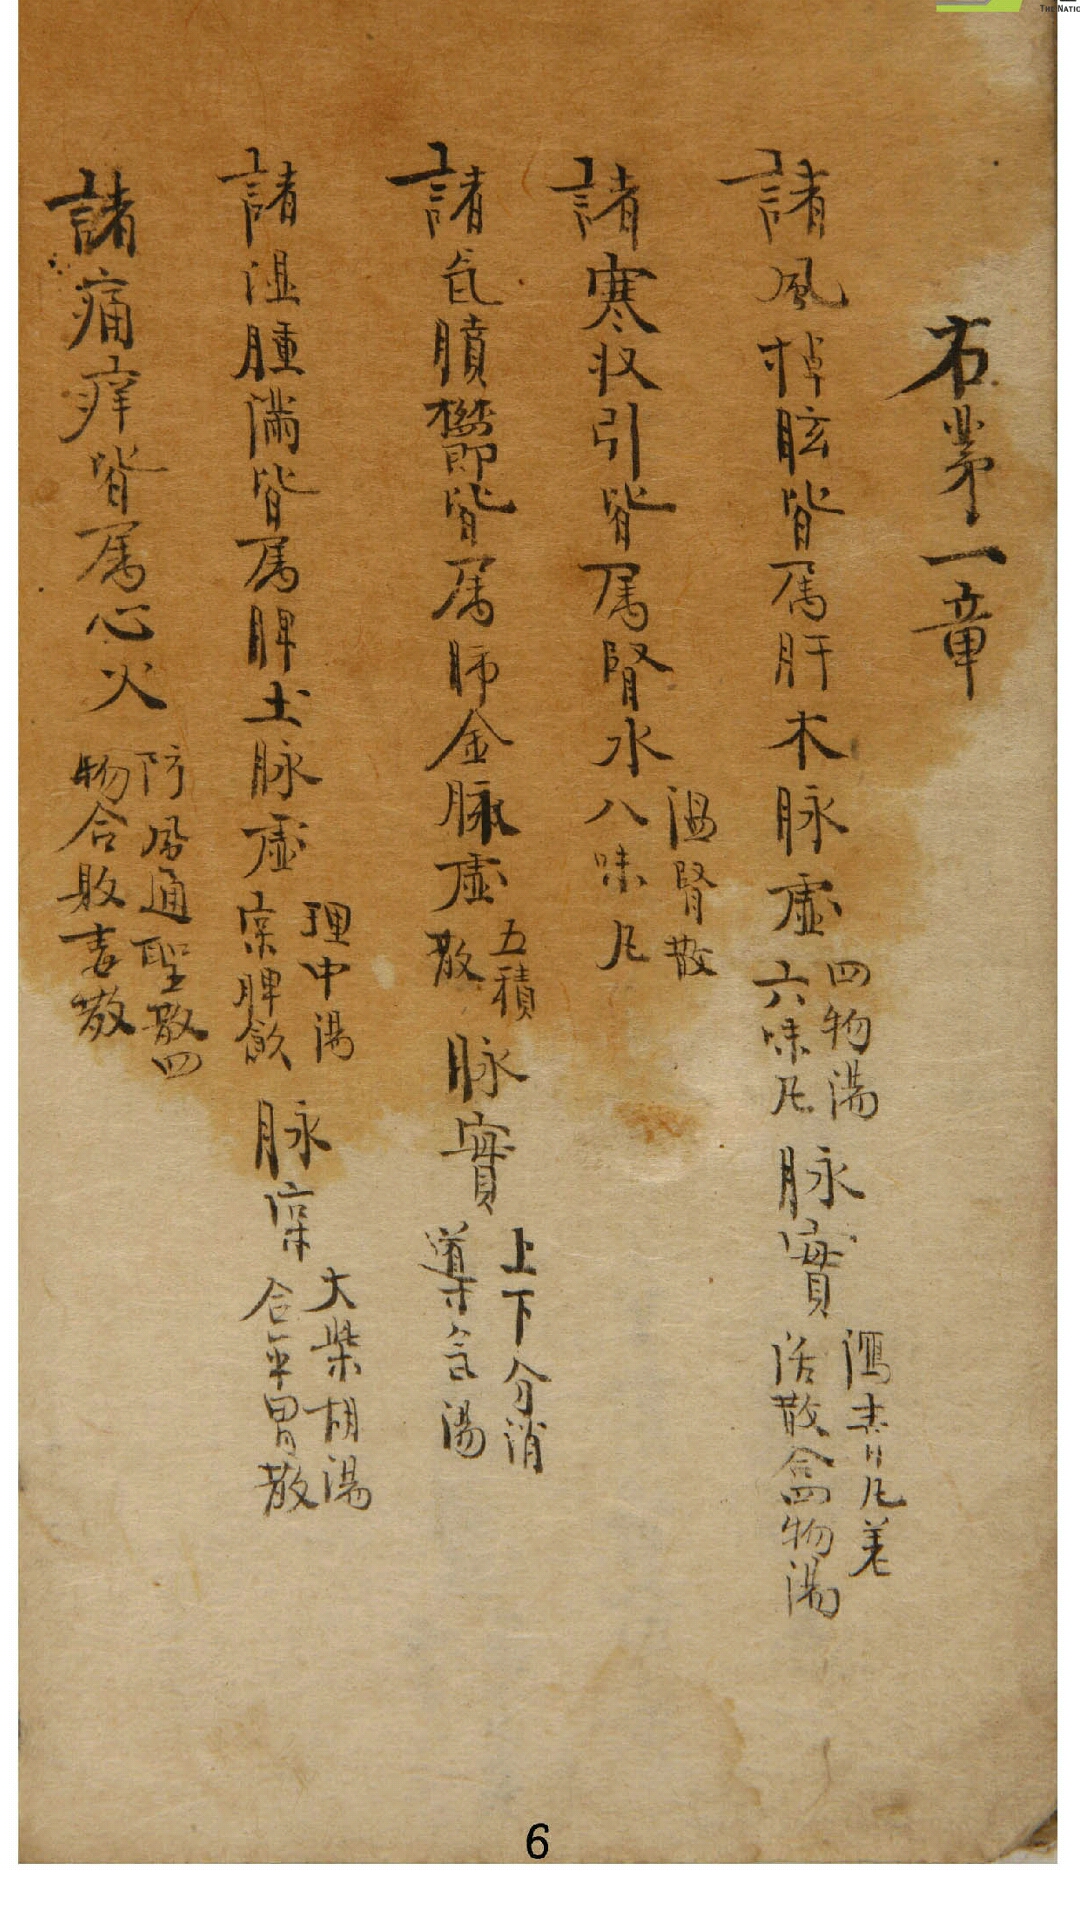 右第一章
諸風掉眩皆属肝木脉虛 四物湯六味凡 脉實 瀉青凡羌活散合四物湯
諸寒収引皆属腎水 温腎散八味凡
諸気膹欝皆属肺金脉虛 五積散 脉實 上下分消導気湯
諸湿腫滿皆属脾土脉虛 理中湯実脾飲 脉実 大柴胡湯合平胃散
諸痛痒皆属心火 防風通聖散四物合敗毒散
6